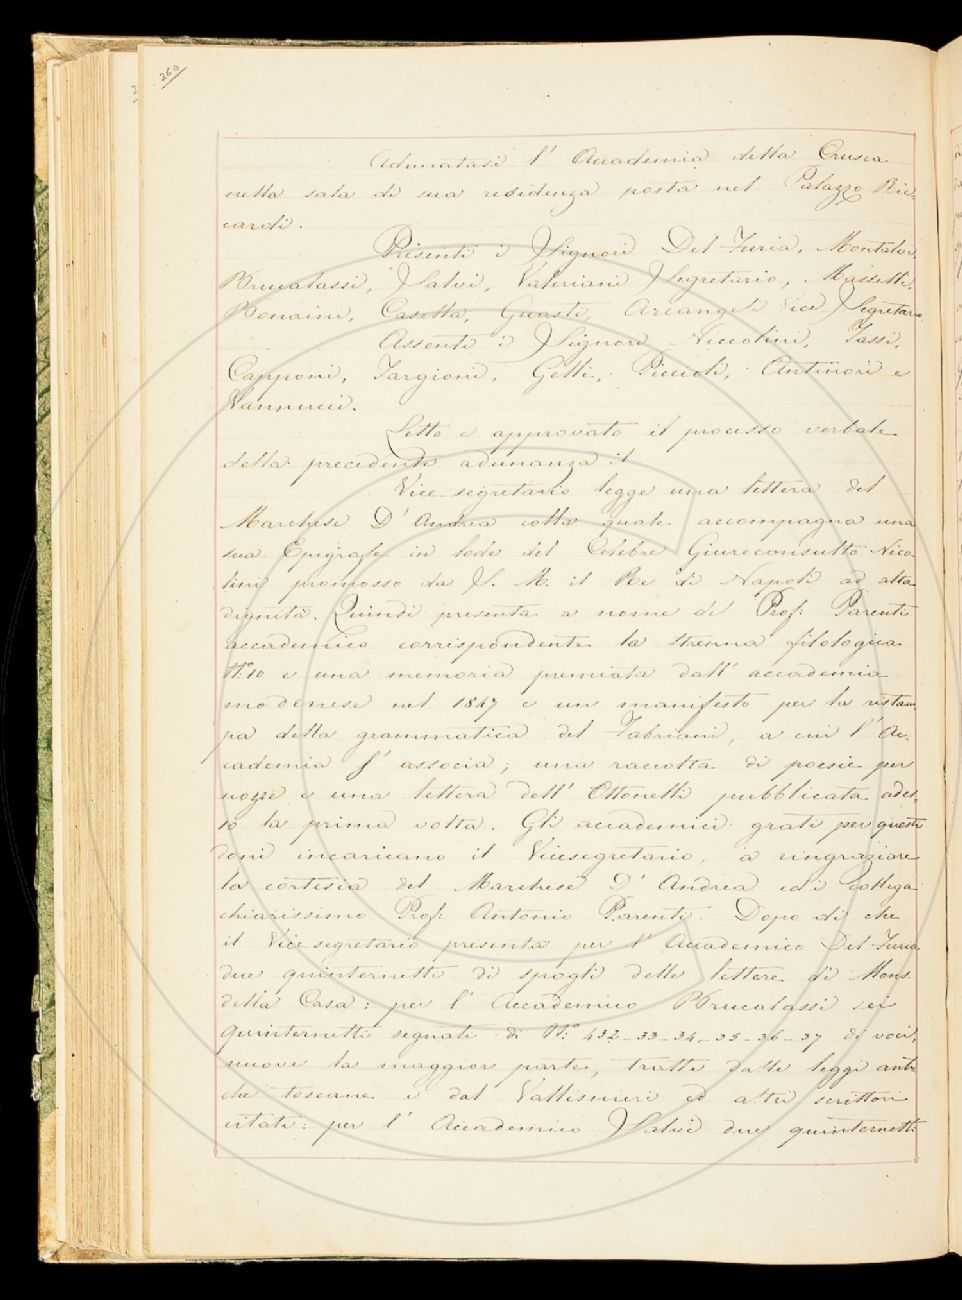 260
Adunatasi l' Accademia della Crusca
nella sala di sua residenza posta nel Palazzo Ric-
cardi.
Presenti i Signori Del-Furia, Montalvi,
Brucalassi, Salvi, Valeriani Segretario, Masselli,
Bonaini, Casella, Guasti, Arcangeli Vice Segretario
Assenti i Signori Niccolini, Tassi,
Capponi, Targioni, Gelli, Piccioli, Antinori e
Vannucci.
Letto e approvato il processo verbale
della precedente adunanza il
Vice segretario legge una lettera del
Marchese D' Andrea colla quale accompagna una
sua Epigrafe in lode del Celebre Giureconsulto Nico-
lini promosso da S. M. il Re di Napoli ad alta
dignità. Quindi presenta a nome del Prof: Parenti
accademico corrispondente la strenna filologica
N:o 10 e una memoria premiata dall' accademia
modenese nel 1847 e un manifesto per la ristam-
pa della grammatica del Fabriani, a cui l' Ac-
cademia s' associa; una raccolta di poesie per
nozze e una lettera dell' Ottonelli pubblicata ades-
so la prima volta. Gli accademici grati per questi
doni incaricano il Vicesegretario, a ringraziare
la cortesia del Marchese D' Andrea ed i collega
chiarissimo Prof: Antonio Parenti. Dopo di che
il Vice segretario presenta per l' Accademico Del-Furia
due quinternetti di spogli delle lettere di Mons.
della Casa: per l' Accademico Brucalassi sei
quinternetti segnati di N:o 432-33-34-35-36-37 di voci,
nuove la maggior parte, tratte dalle leggi anti-
che toscane e dal Vallisnieri ed altri scrittori
citati: per l' Accademico Salvi due quinternetti